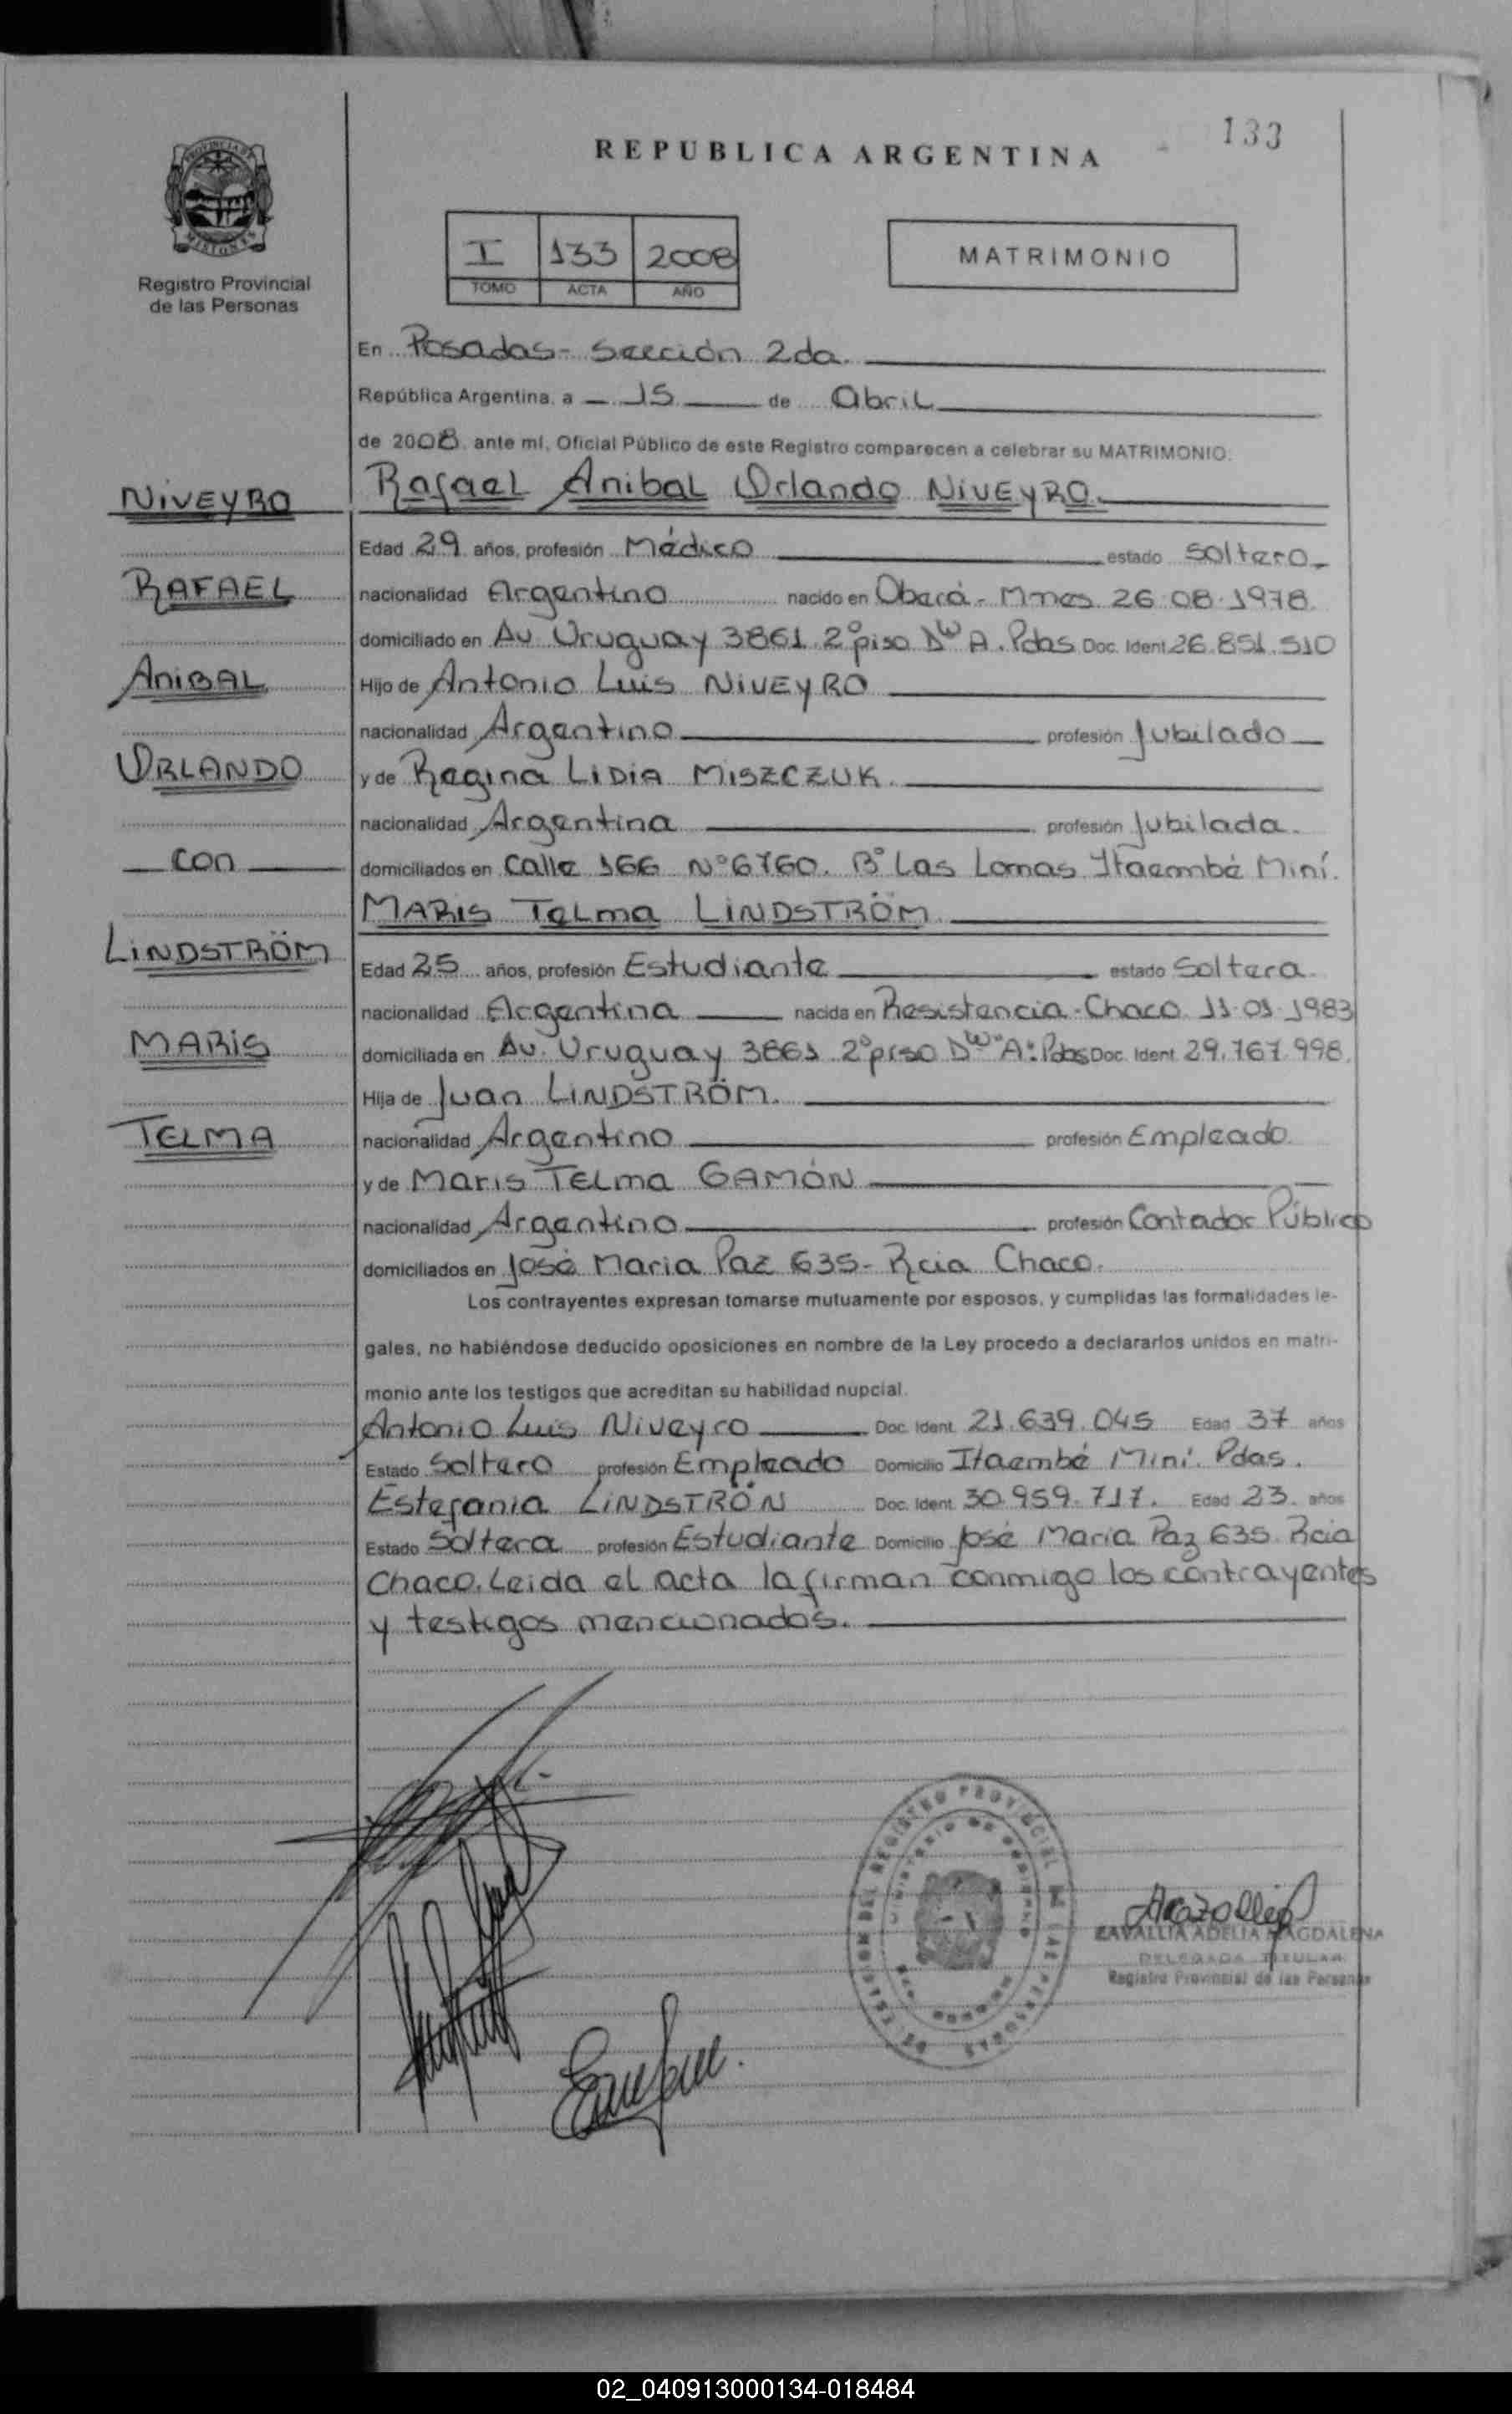 133
REPUBLICA ARGENTINA
PROVINCIA DE
MISIONES
Registro Provincial
de las Personas
I 133 2008
TOMO ACTA AÑO
MATRIMONIO
En Posadas - Sección 2da.
República Argentina, a 15 de Abril
de 2008 ante mí, Oficial Público de este Registro comparecen a celebrar su MATRIMONIO:
NIVEYRO
Rafael Anibal Orlando NIVEYRO.
Edad 29 años, profesión Médico estado Soltero
RAFAEL
nacionalidad Argentino nacido en Oberá - Mnes 26.08.1978.
domiciliado en Av. Uruguay 3861 2º piso Dto A. Pdas Doc. Ident. 26.851.510
ANIBAL
Hijo de Antonio Luis NIVEYRO
nacionalidad Argentino profesión Jubilado
ORLANDO
y de Regina LIDIA MISZCZUK.
nacionalidad Argentina profesión Jubilada.
con
domiciliados en Calle 166 Nº 6760. Bº Las Lomas Itaembé Miní.
MARIS TELMA LINDSTRÖM
LINDSTRÖM
Edad 25 años, profesión Estudiante estado Soltera.
nacionalidad Argentina nacida en Resistencia - Chaco 11-01-1983
MARIS
domiciliada en Av. Uruguay 3861 2º piso Dto "A" Pdas Doc. Ident. 29.767.998.
Hija de Juan LINDSTRÖM.
TELMA
nacionalidad Argentino profesión Empleado.
y de Maris TELMA GAMÓN
nacionalidad Argentino profesión Contador Público
domiciliados en José Maria Paz 635 - Rcia Chaco.
Los contrayentes expresan tomarse mutuamente por esposos, y cumplidas las formalidades le-
gales, no habiéndose deducido oposiciones en nombre de la Ley procedo a declararlos unidos en matri-
monio ante los testigos que acreditan su habilidad nupcial.
Antonio Luis Niveyro Doc. Ident. 21.639.045 Edad 37 años
Estado Soltero profesión Empleado Domicilio Itaembé Miní. Pdas.
Estefania LINDSTRÖN Doc. Ident. 30.959.717. Edad 23. años
Estado Soltera profesión Estudiante Domicilio José Maria Paz 635 Rcia
Chaco. Leida el acta la firman conmigo los contrayentes
y testigos mencionados.
ZAVALLIA ADELIA MAGDALENA
DELEGADA TITULAR
Registro Provincial de las Personas
02_040913000134-018484